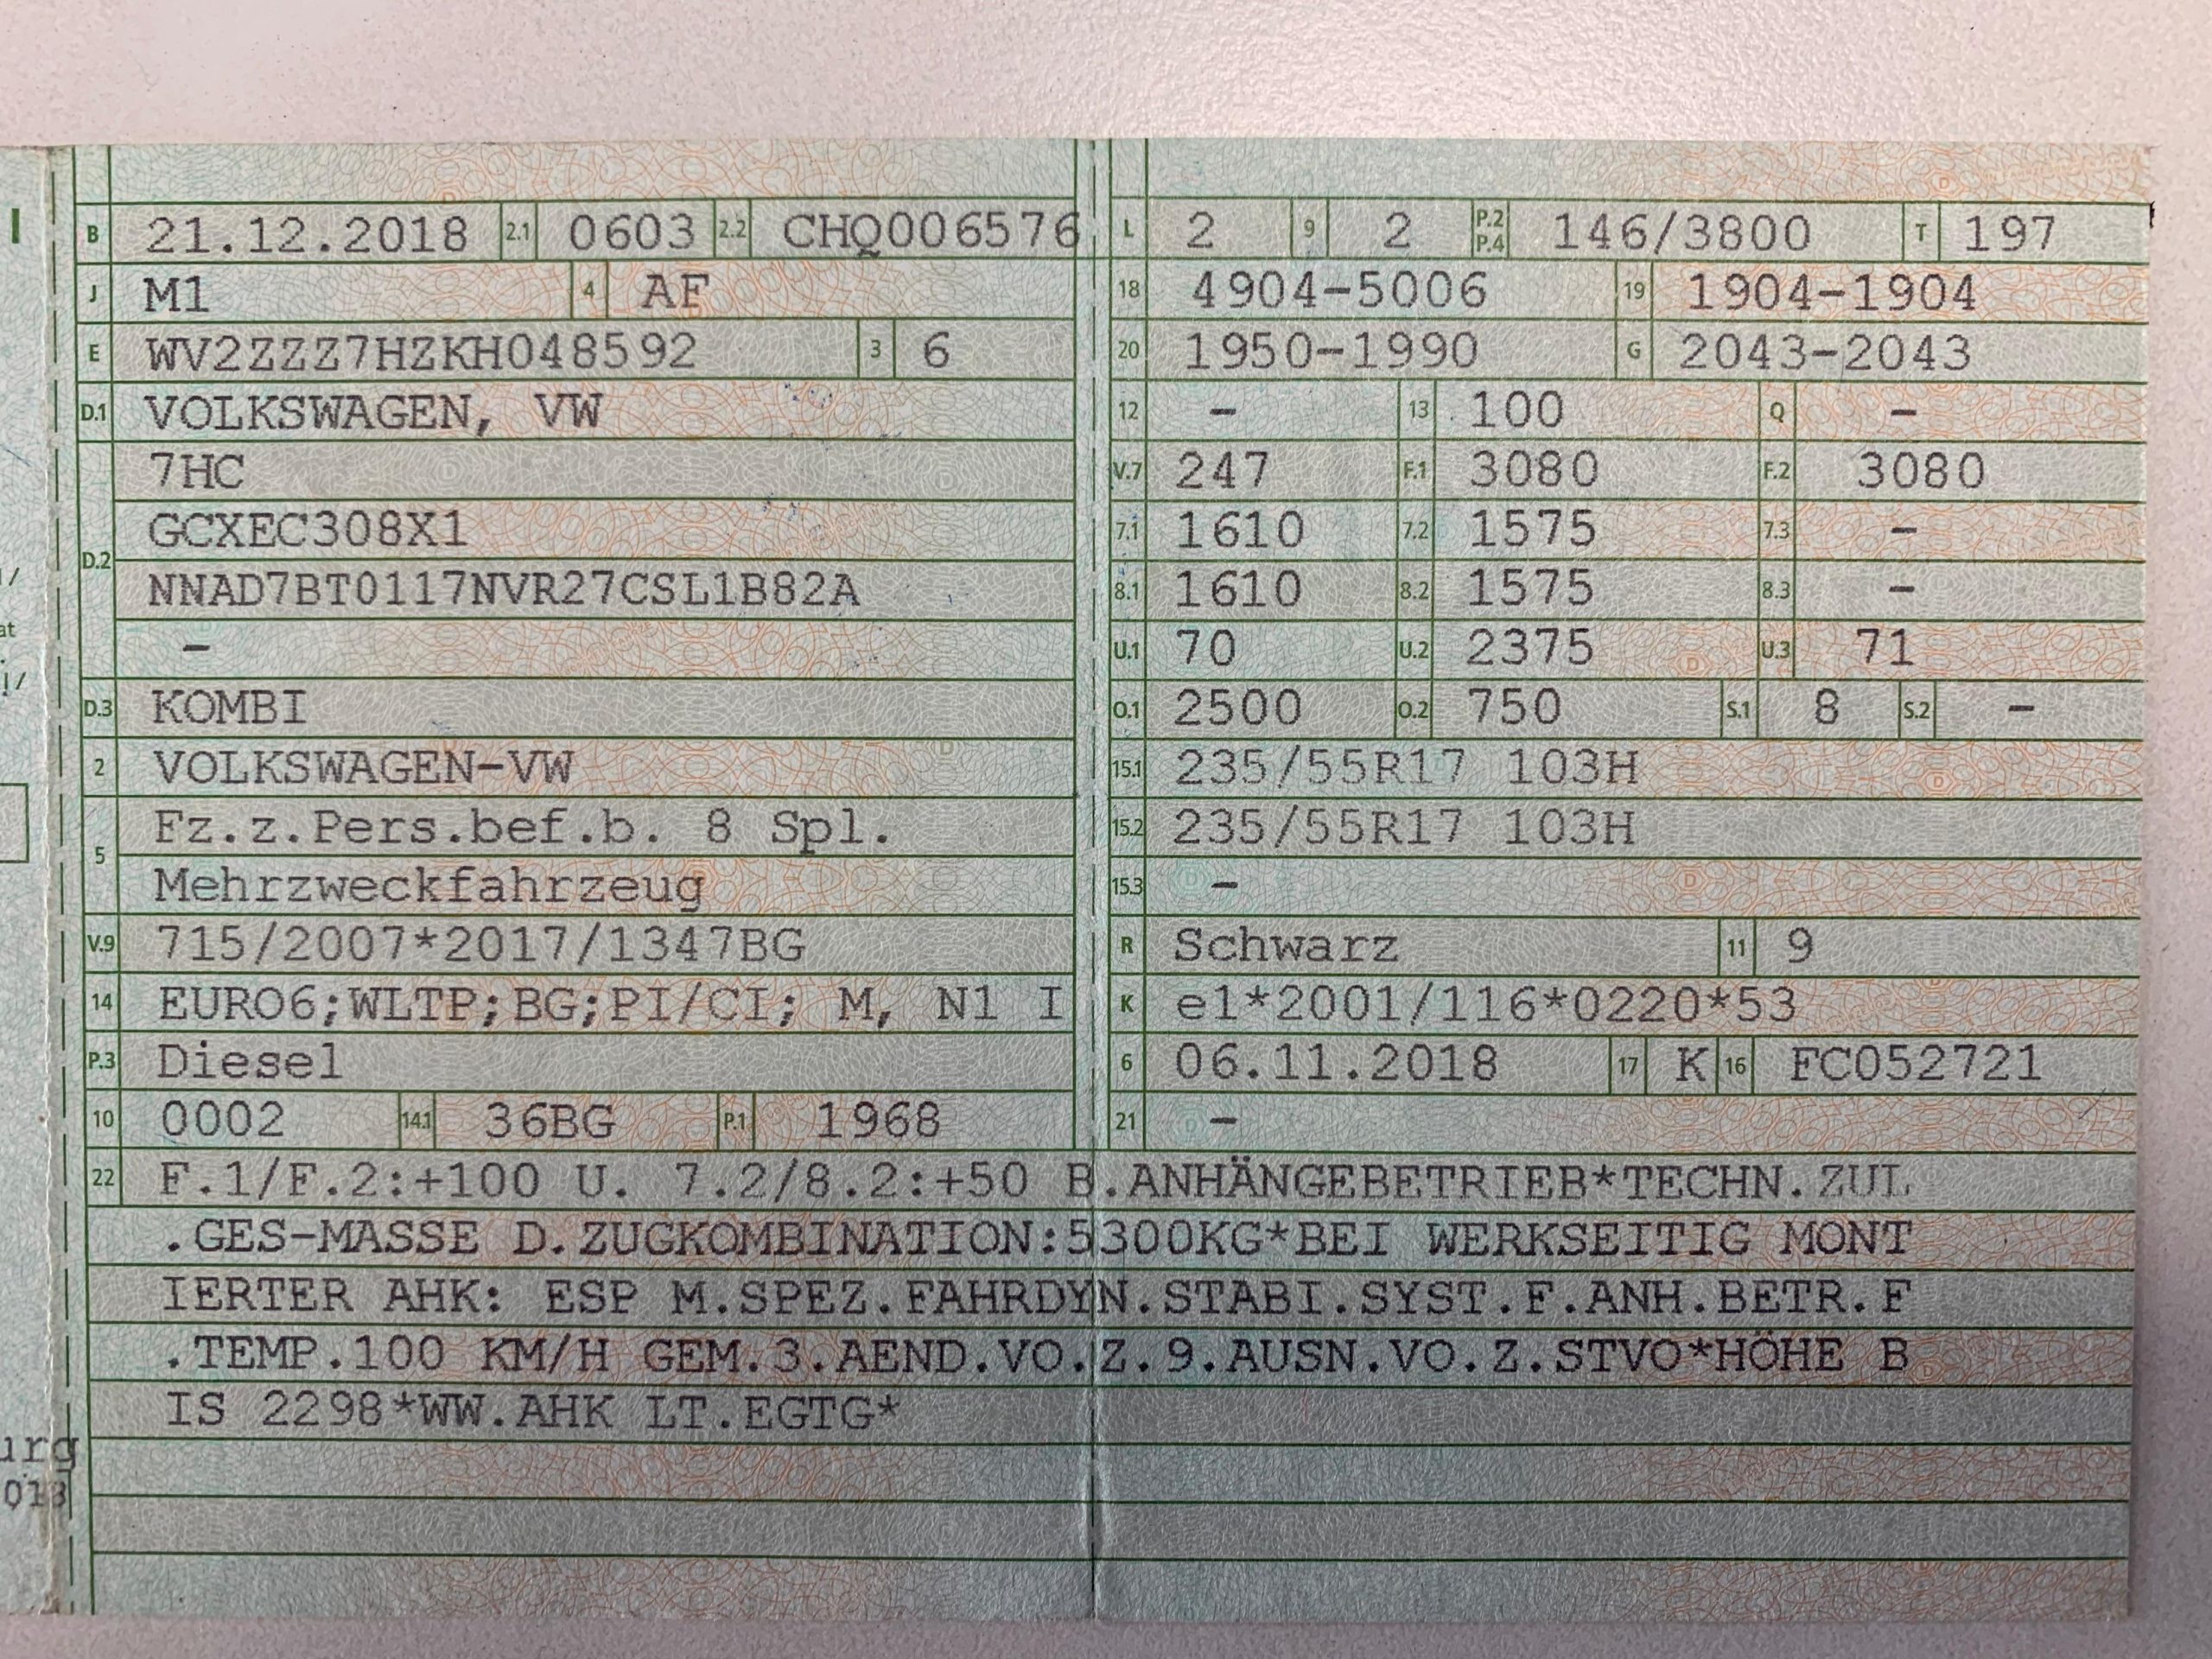 B 21.12.2018 2.1 0603 2.2 CHQ006576
J M1 4 AF
E WV2ZZZ7HZKH048592 3 6
D.1 VOLKSWAGEN, VW
7HC
GCXEC308X1
D.2
NNAD7BT0117NVR27CSL1B82A
–
D.3 KOMBI
2 VOLKSWAGEN-VW
Fz.z.Pers.bef.b. 8 Spl.
5
Mehrzweckfahrzeug
V.9 715/2007*2017/1347BG
14 EURO6;WLTP;BG;PI/CI; M, N1 I
P.3 Diesel
10 0002 14.1 36BG P.1 1968
L 2 9 2 P.2 P.4 146/3800 T 197
18 4904-5006 19 1904-1904
20 1950-1990 G 2043-2043
12 – 13 100 Q –
V.7 247 F.1 3080 F.2 3080
7.1 1610 7.2 1575 7.3 –
8.1 1610 8.2 1575 8.3 –
U.1 70 U.2 2375 U.3 71
O.1 2500 O.2 750 S.1 8 S.2 –
15.1 235/55R17 103H
15.2 235/55R17 103H
15.3 –
R Schwarz 11 9
K e1*2001/116*0220*53
6 06.11.2018 17 K 16 FC052721
21 –
22 F.1/F.2:+100 U. 7.2/8.2:+50 B.ANHÄNGEBETRIEB*TECHN.ZUL
.GES-MASSE D.ZUGKOMBINATION:5300KG*BEI WERKSEITIG MONT
IERTER AHK: ESP M.SPEZ.FAHRDYN.STABI.SYST.F.ANH.BETR.F
.TEMP.100 KM/H GEM.3.AEND.VO.Z.9.AUSN.VO.Z.STVO*HÖHE B
IS 2298*WW.AHK LT.EGTG*